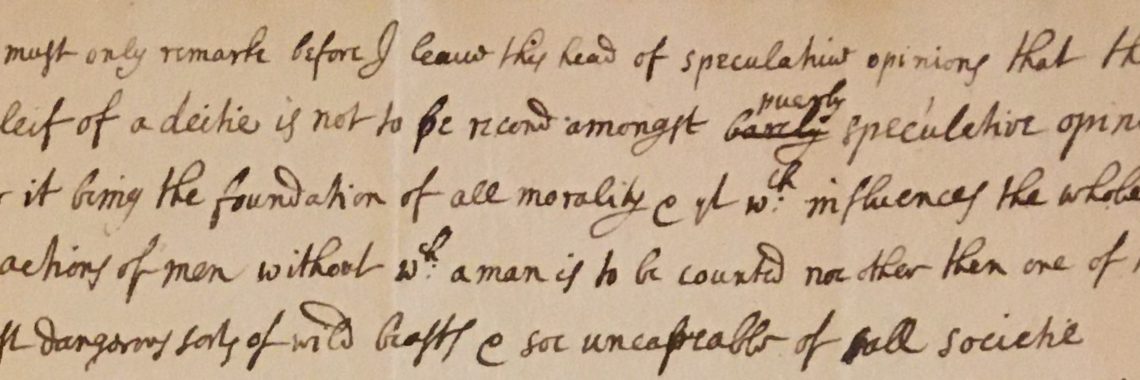 must only remarke before I leave this head of speculative opinions that th
leif of a deitie is not to be recond amongst barely puerly speculative opin
it being the foundation of all morality & yt wch: influences the whole
actions of men without wch: a man is to be counted noe other then one of
st dangerous sorts of wild beasts & soe uncapeable of all societie